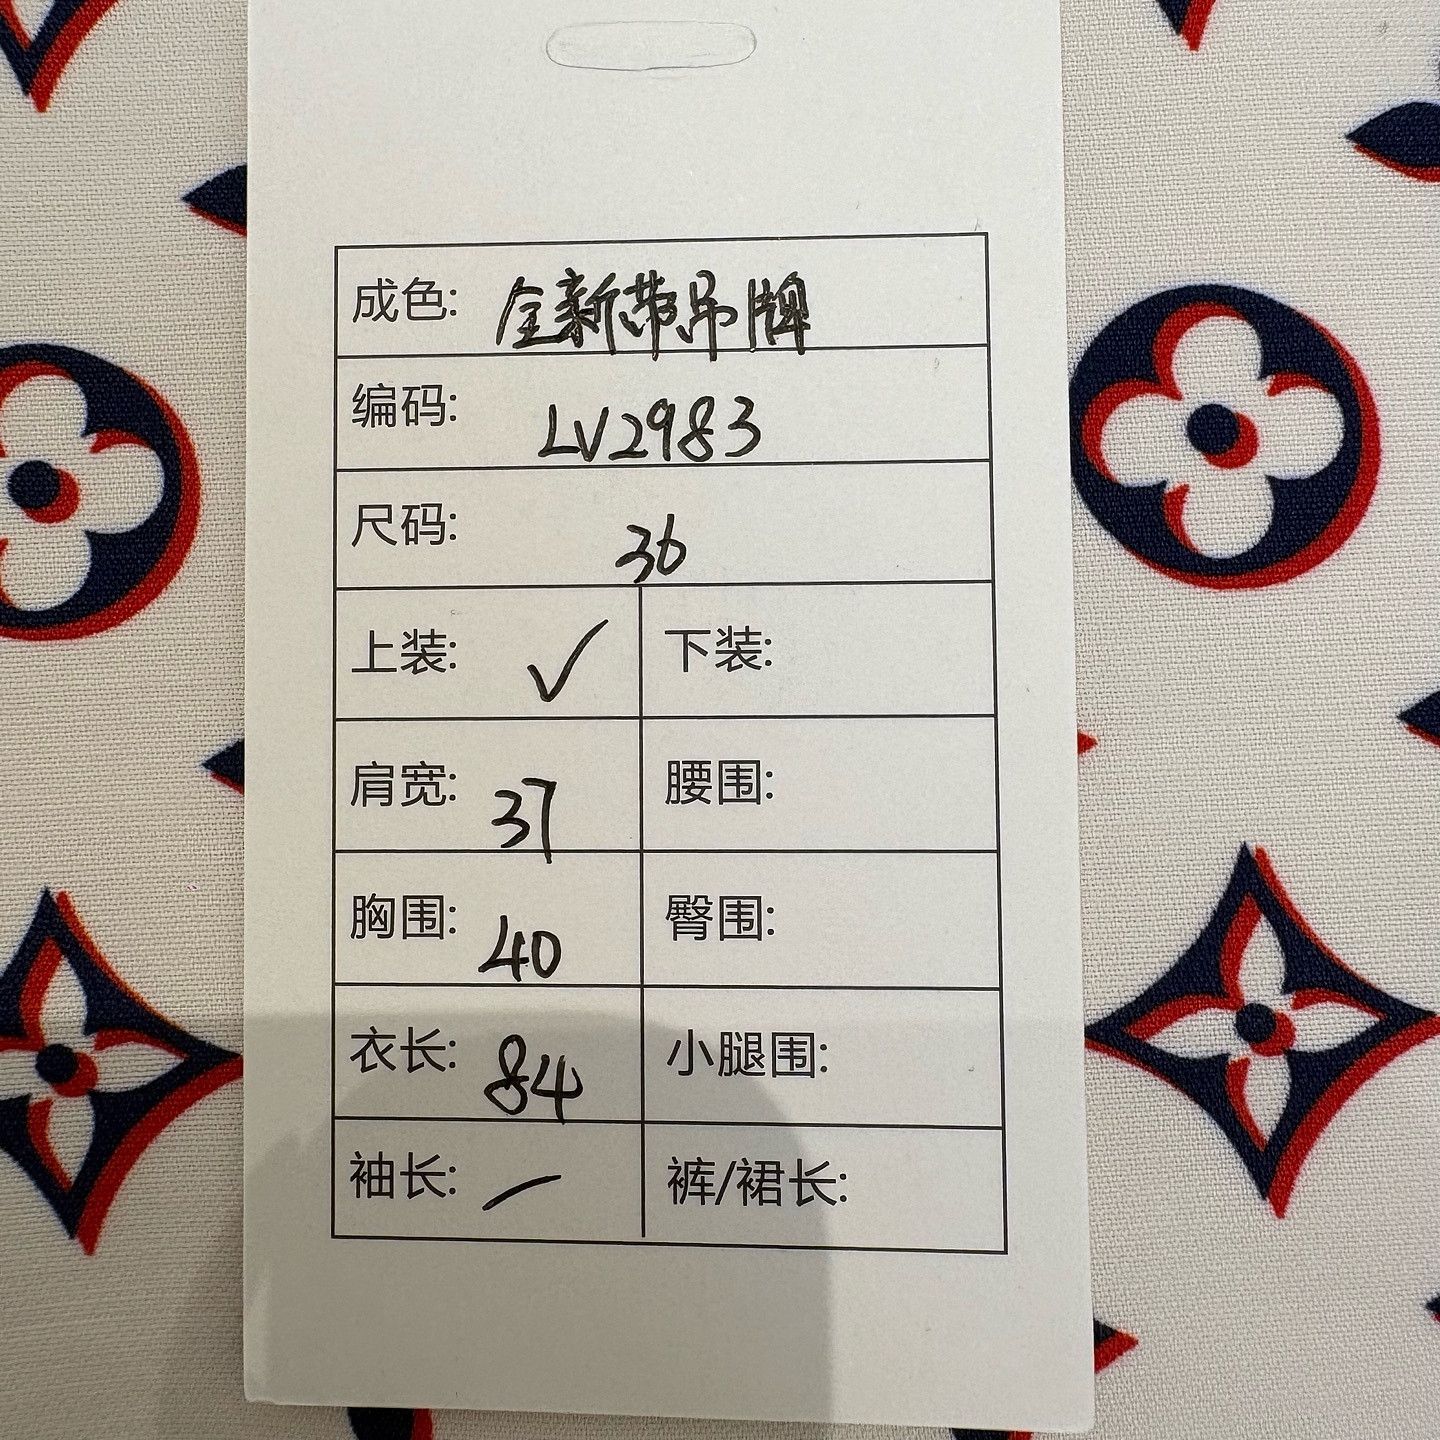 成色: 全新带吊牌
编码: LV2983
尺码: 36
上装: ✓ 下装:
肩宽: 37 腰围:
胸围: 40 臀围:
衣长: 84 小腿围:
袖长: — 裤/裙长: